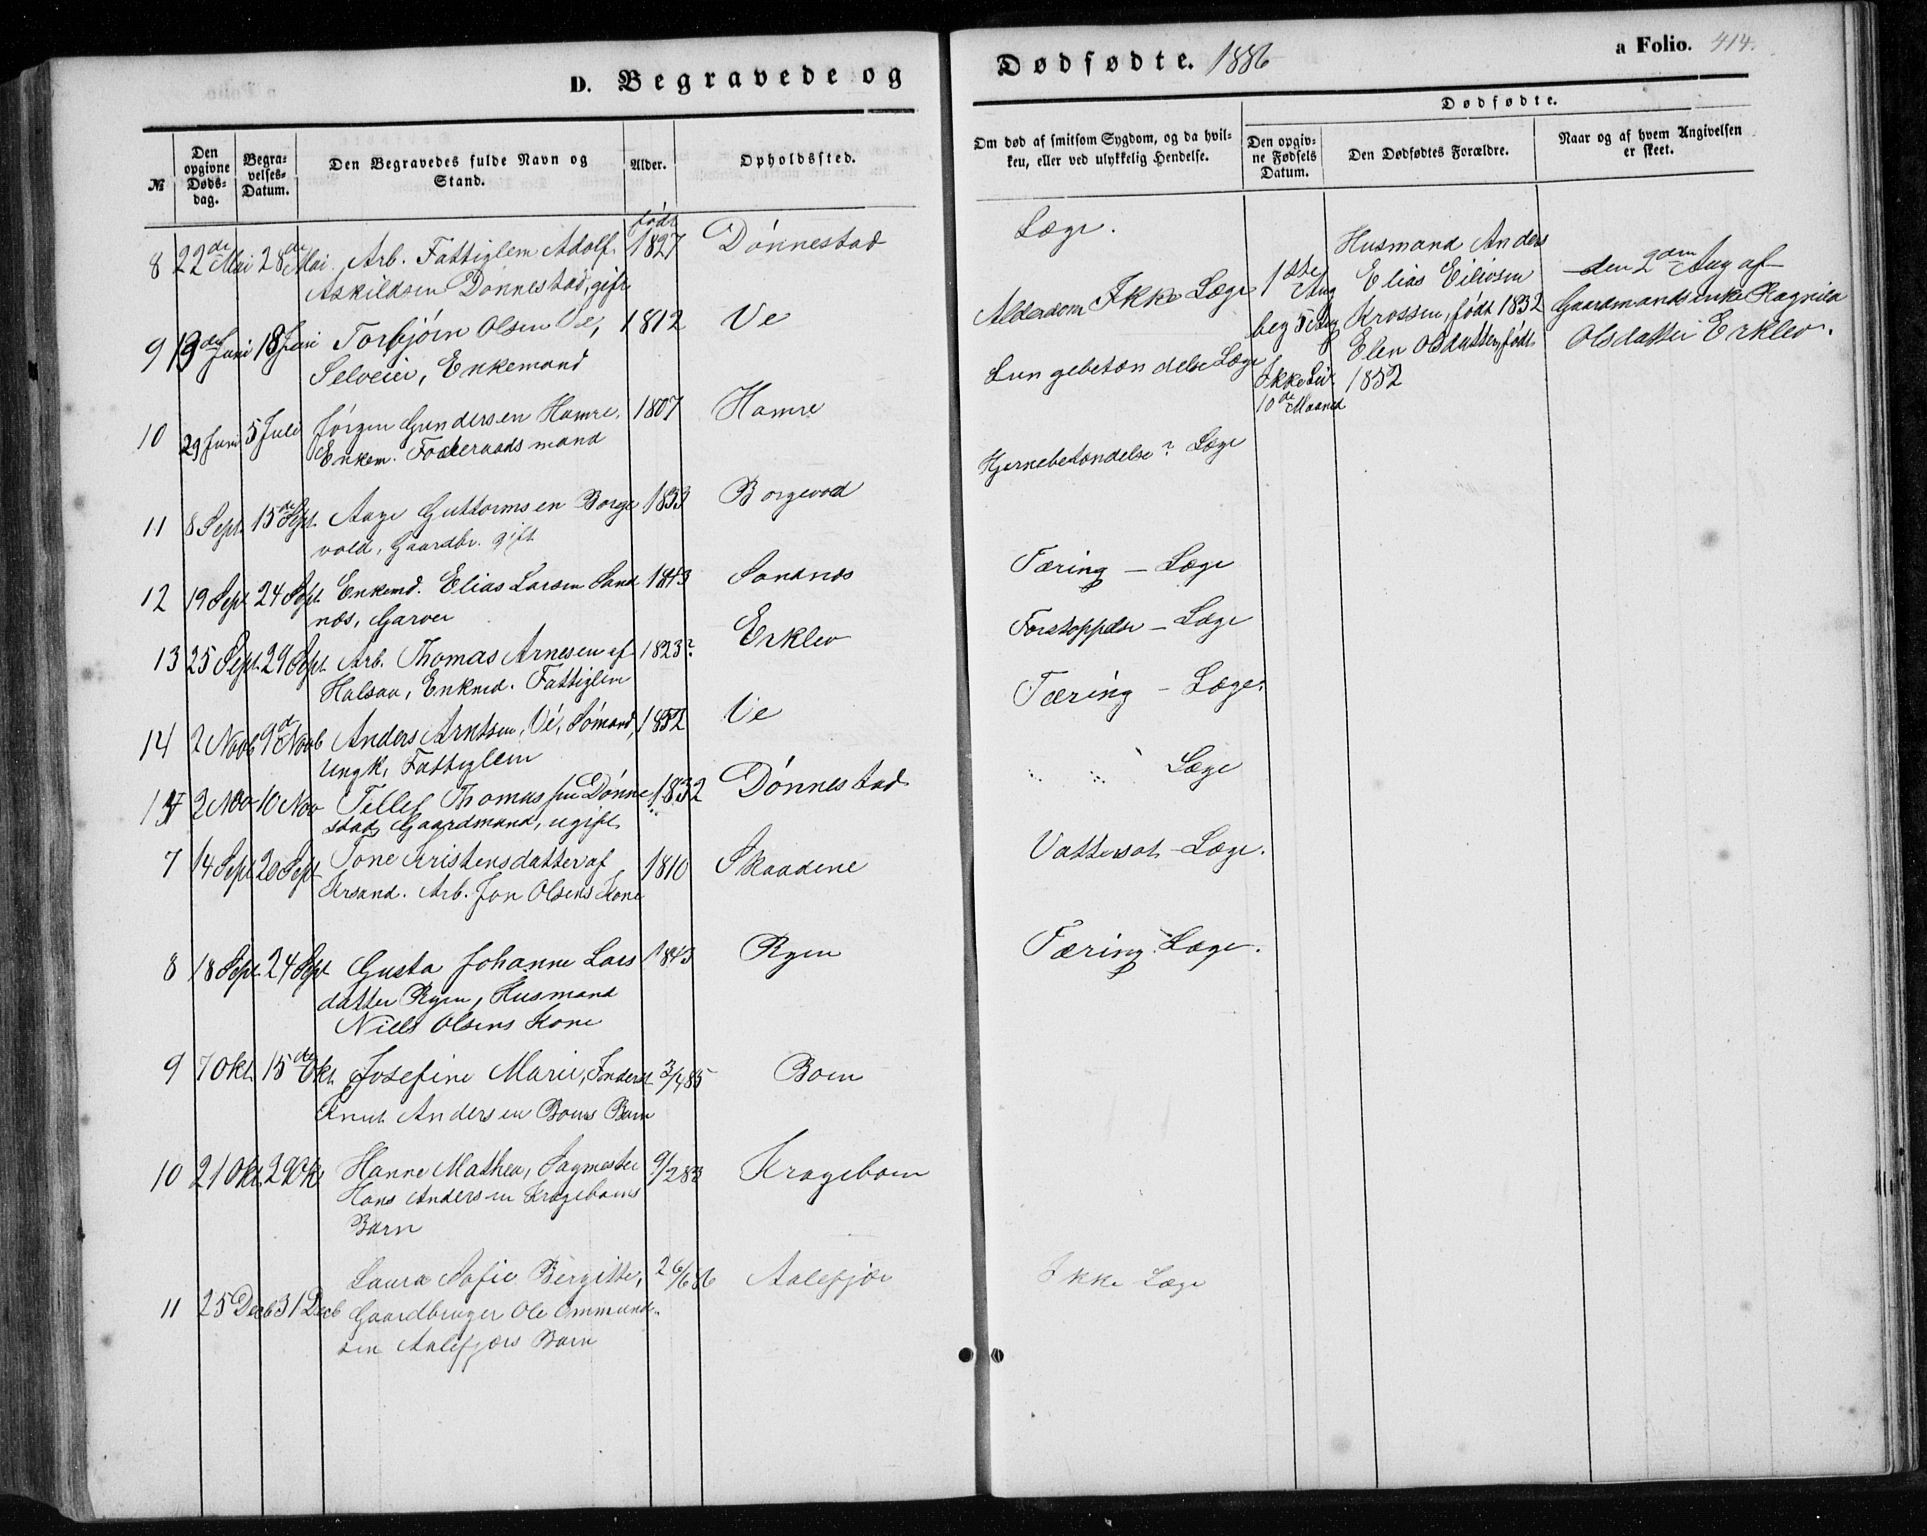 D. Begravede og
Dødfødte. 1886
a Folio. 414.
№
Den opgivne Døds-dag.
Begra-velses-Datum.
Den Begravedes fulde Navn og Stand.
Alder.
Opholdssted.
Om død af smitsom Sygdom, og da hvil-
ken, eller ved ulykkelig Hendelse.
Dødfødte.
Den opgiv-ne Fødsels Datum.
Den Dødfødtes Forældre.
Naar og af hvem Angivelsen er skeet.
født
8 22de Mai 28de Mai Arb. Fattiglem Adolf 1827 Dønnestad Læge.
Askildsen Dønnestad, gift
9 13de Juni 18 Juni Torbjørn Olsen Ve, 1812 Ve Alderdom Ikke Læge
Selveier, Enkemand
10 29 Juni 5 Juli Jørgen Gundersen Hamre, 1807 Hamre Lungebetændelse Læge
Enkem. Foderaadsmand
11 8 Sept. 15de Sept. Aage Guttormsen Borge 1833 Borgevold Hjernebetændelse? Læge
vold, Gaardbr. gift
12 19 Sept 24 Sept. Enkemd. Elias Larsen Sand 1843 Sandnes Tæring – Læge
nes, Garver
13 25 Sept. 29 Sept. Arb. Thomas Arnesen af 1823? Erklev Forstoppelse – Læge
Halsaa, Enkmd. Fattiglem
14 2 Novb 9d Novb Anders Arntsen, Ve, Sømand, 1852 Ve Tæring – Læge.
Ungk, Fattiglem
15 2 Nov 10 Nov Tellef Thomassen Dønne 1832 Dønnestad " " Læge
stad, Gaardmand, ugift
7 14 Sept 20 Sept Tone Kristensdatter af 1810 Skaadene Vattersot – Læge.
Krsand. Arb. Jon Olsens Kone
8 18 Sept. 24 Sept Gusta Johanne Lars 1843 Ryen Tæring. Læge.
datter Ryen, Husmand
Niels Olsens Kone
9 7 Okt. 15de Okt. Josefine Marie, Inderst 3/4 85 Boen
Knut Andersen Boens Barn
10 21 Okt. 29 Okt Hanne Mathea, Sagmester 9/2 83 Krageboen
Hans Andersen Krageboens
Barn
11 25 Decb 31 Decb Laura Sofie Bergitte, 26/6 86 Aalefjær Ikke Læge
Gaardbruger Ole Ommund-
sen Aalefjærs Barn
1ste Aug
beg 7 Aug
Ikke Liv
10de Maaned
Husmand Anders
Elias Eilivsen
Krossen, født 1832
Elen Olsdatter, født
1852
den 2den Aug af
Gaardmandsenke Ragnild
Olsdatter Erklev.